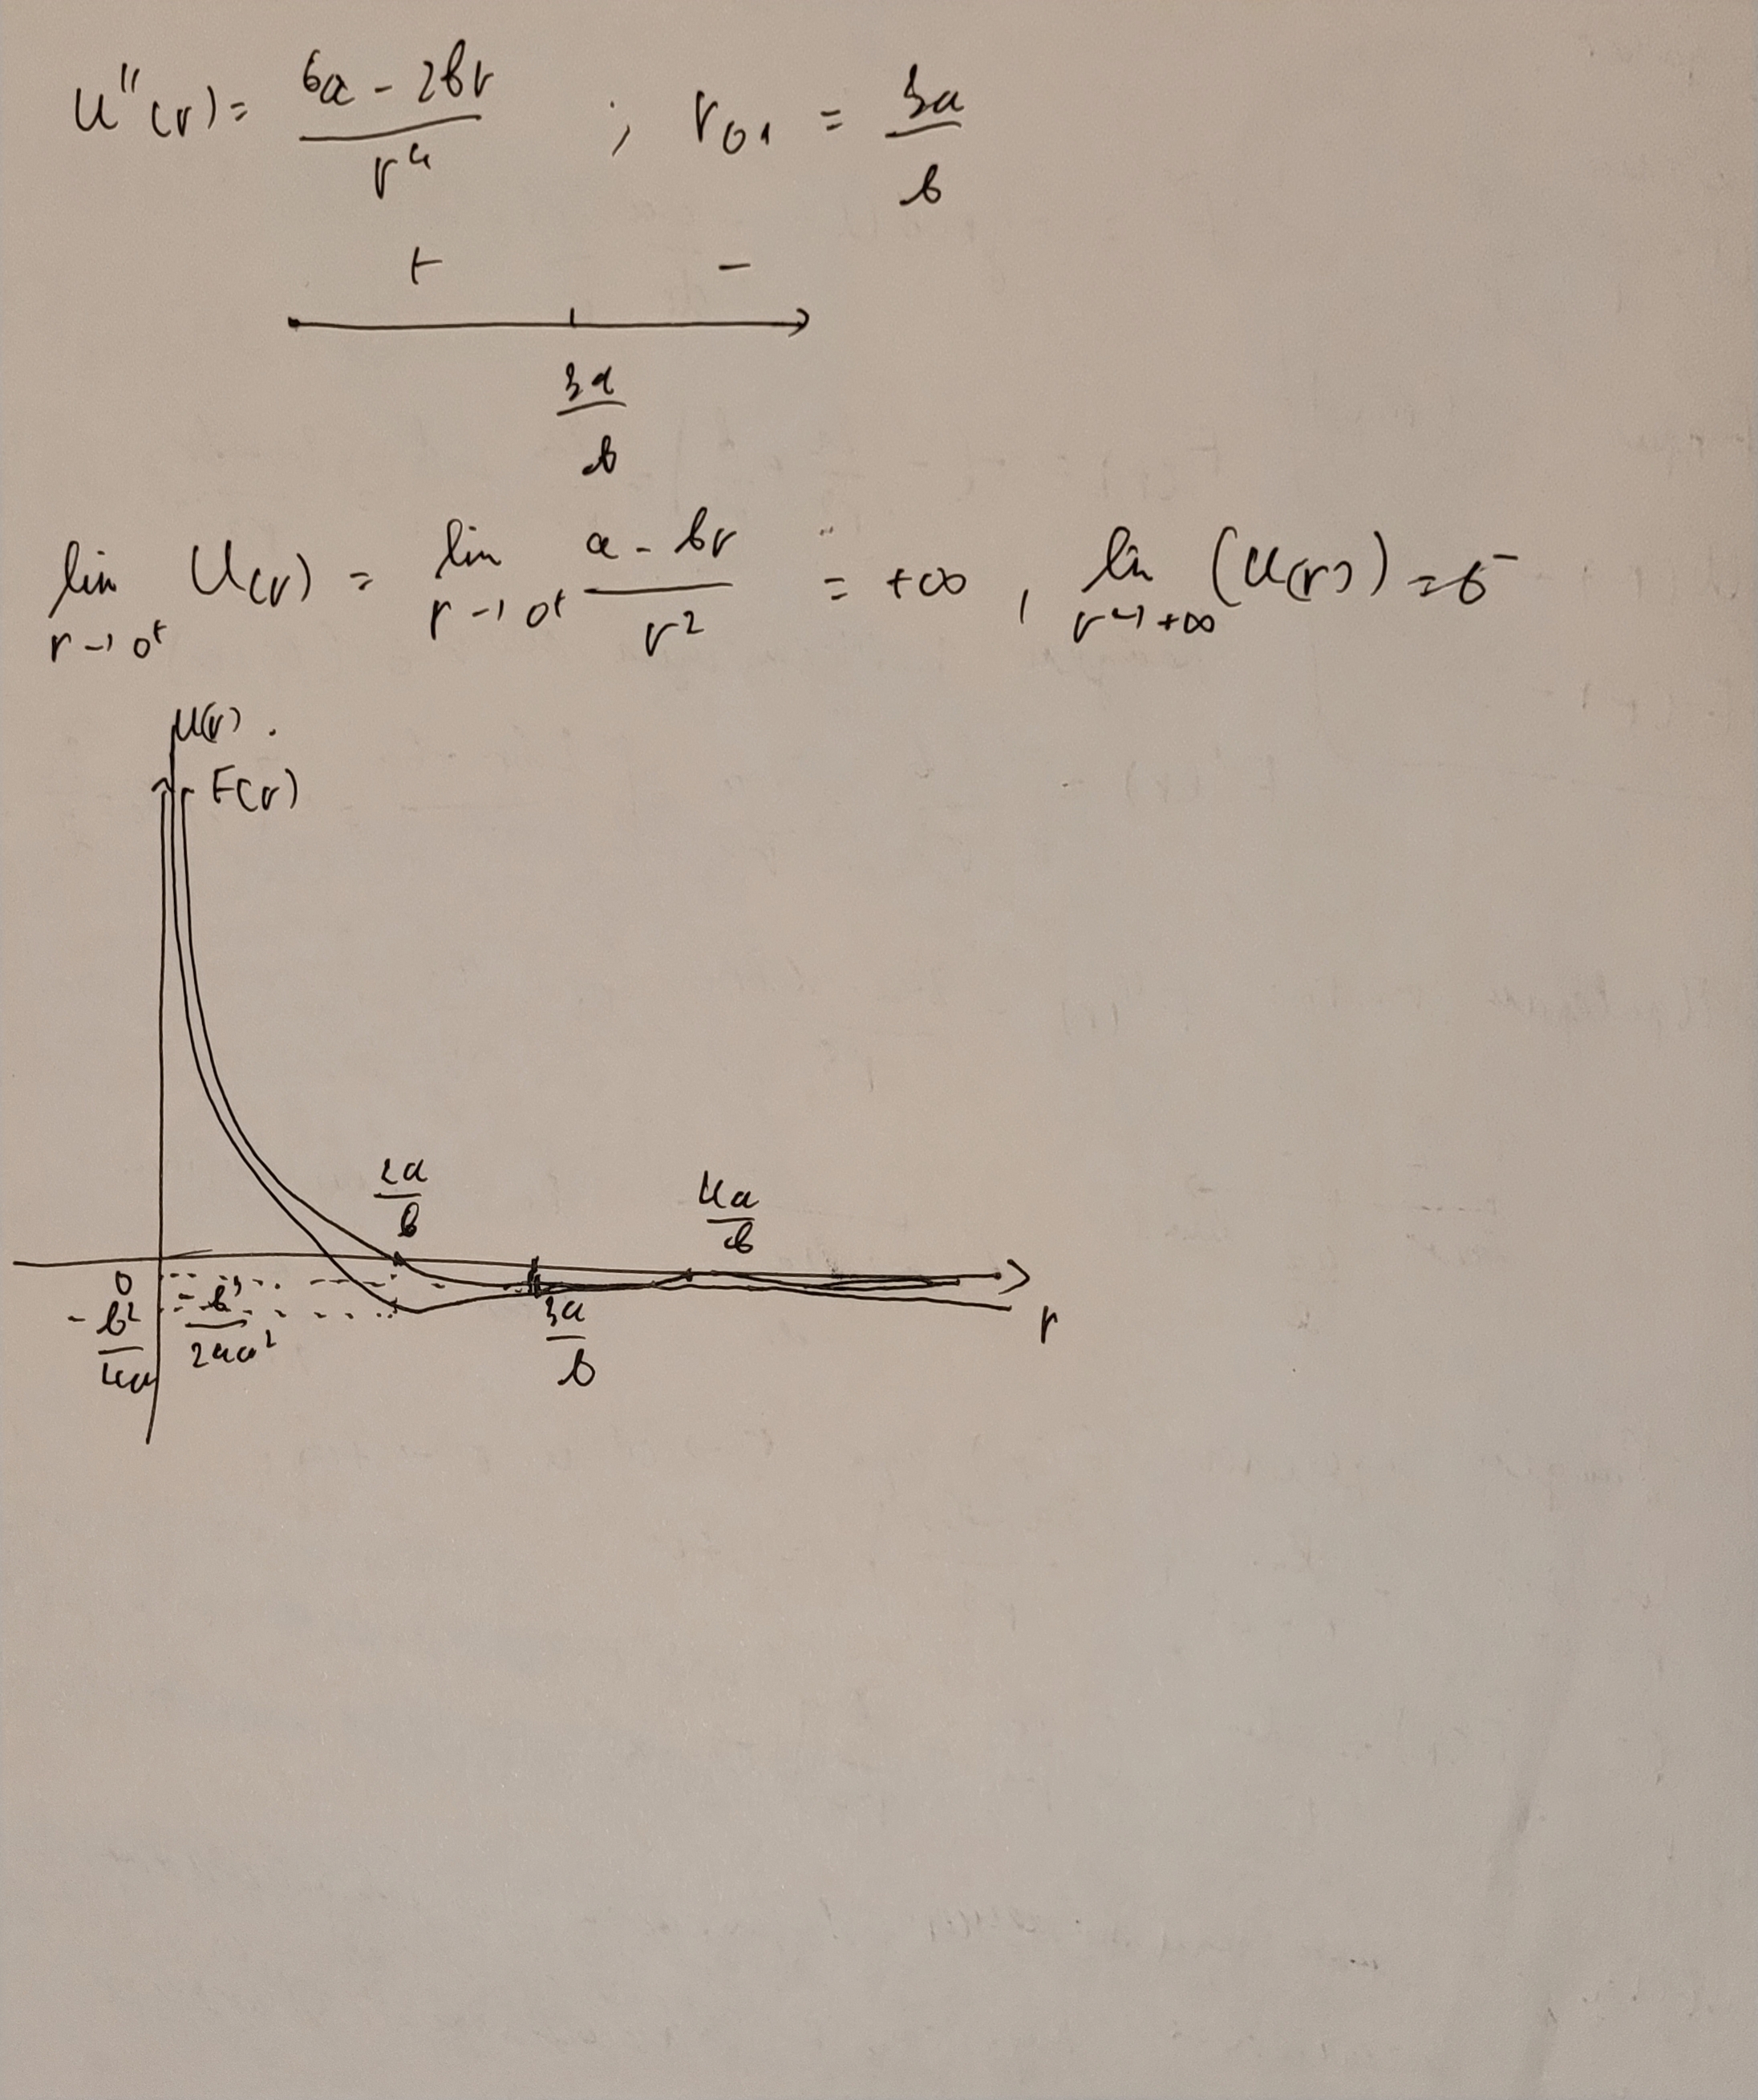 U''(r) = (6a - 2br)/r⁴ ; r₀₁ = 3a/b
+ −
3a/b
lim r→0⁺ U(r) = lim r→0⁺ (a - br)/r² = +∞ , lim r→+∞ (U(r)) = 0⁻
U(r)
F(r)
2a/b 4a/b
0
-b²/4a -b³/24a² 3a/b r